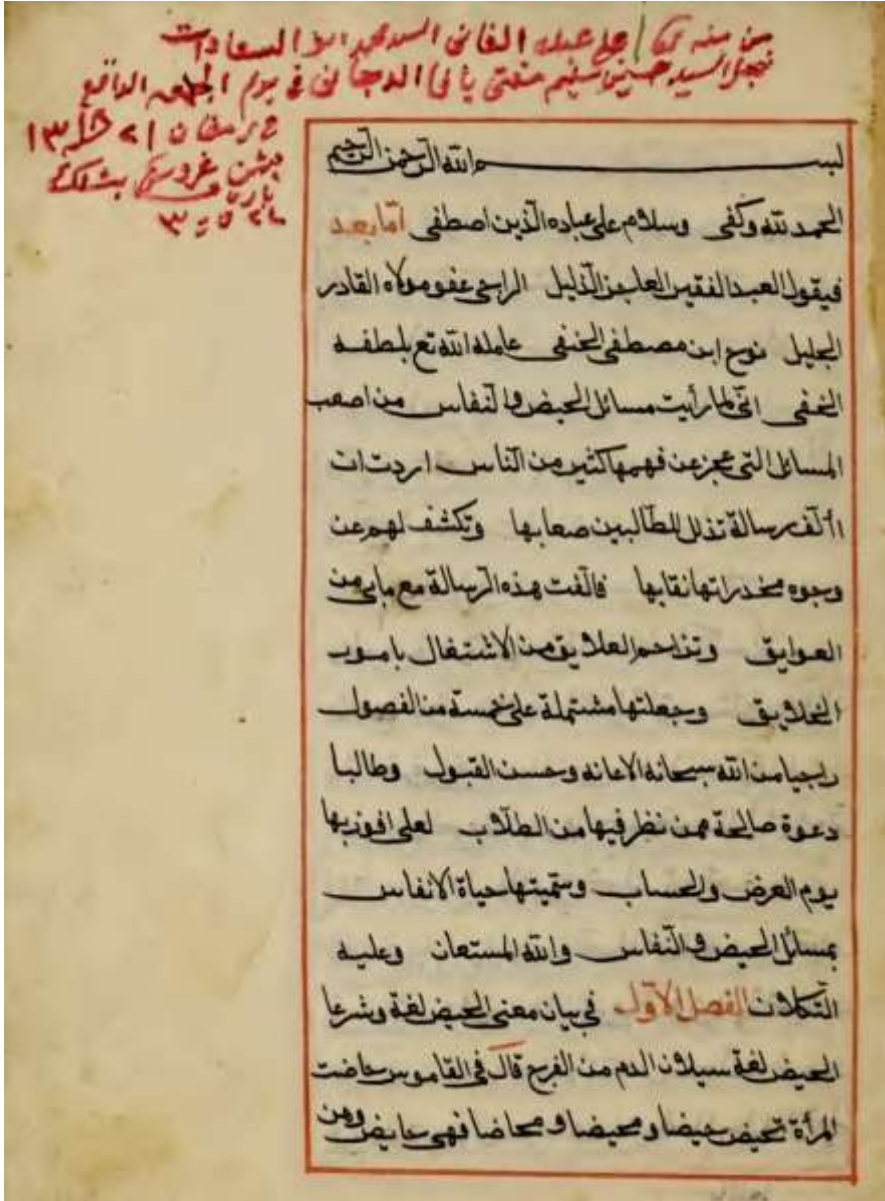 من منه تعالى على عبده الفاني السيد محمد ابو السعادات
نجل السيد حسين سليم مفتي يافا الدجاني في يوم الجمعه الواقع
في رمضان ١٢
بسم الله الرحمن الرحيم
الحمد لله وكفى وسلام على عباده الذين اصطفى اما بعد
فيقول العبد الفقير العاجز الذليل الراجى عفو مولاه القادر
الجليل نوح ابن مصطفى الحنفى عامله الله تع بلطفه
الخفى انى لما رأيت مسائل الحيض والنفاس من اصعب
المسائل التى عجز عن فهمها كثير من الناس اردت ان
أألف رسالة تذلل للطالبين صعابها وتكشف لهم عن
وجوه مخدراتها نقابها فالفت هذه الرسالة مع مابى من
العوايق وتزاحم العلايق من الاشتغال بامور
الخلايق وجعلتها مشتملة على خمسة من الفصول
راجيا من الله سبحانه الاعانه وحسن القبول وطالبا
دعوة صالحة ممن نظر فيها من الطلاب لعلى افوز بها
يوم العرض والحساب وسميتها حياة الانفاس
بمسائل الحيض والنفاس والله المستعان وعليه
التكلان الفصل الاول فى بيان معنى الحيض لغة وشرعا
الحيض لغة سيلان الدم من الفرج قال فى القاموس حاضت
المرأة تحيض حيضا ومحيضا ومحاضا فهى حايض ومن